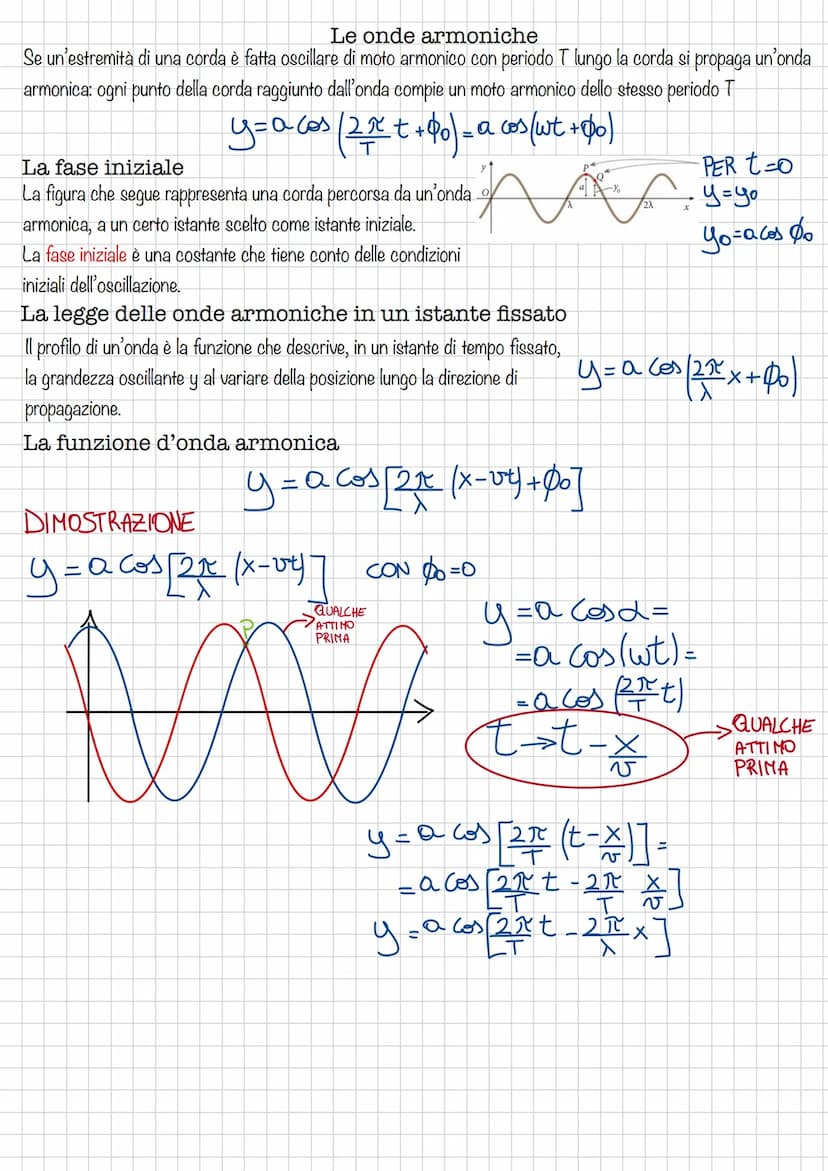 Le onde armoniche
Se un'estremità di una corda è fatta oscillare di moto armonico con periodo T lungo la corda si propaga un'onda
armonica: ogni punto della corda raggiunto dall'onda compie un moto armonico dello stesso periodo T
y = a cos (2π/T t + ϕ0) = a cos (ωt + ϕ0)
La fase iniziale
La figura che segue rappresenta una corda percorsa da un'onda
armonica, a un certo istante scelto come istante iniziale.
La fase iniziale è una costante che tiene conto delle condizioni
iniziali dell'oscillazione.
y P Q a y0 O λ 2λ x
PER t=0
y=y0
y0=a cos ϕ0
La legge delle onde armoniche in un istante fissato
Il profilo di un'onda è la funzione che descrive, in un istante di tempo fissato,
la grandezza oscillante y al variare della posizione lungo la direzione di
propagazione.
y = a cos (2π/λ x + ϕ0)
La funzione d'onda armonica
y = a cos [2π/λ (x-vt) + ϕ0]
DIMOSTRAZIONE
y = a cos [2π/λ (x-vt)] CON ϕ0=0
P
QUALCHE
ATTIMO
PRIMA
y = a cos α =
= a cos (ωt) =
= a cos (2π/T t)
t → t - x/v
QUALCHE
ATTIMO
PRIMA
y = a cos [2π/T (t - x/v)] =
= a cos [2π/T t - 2π/T x/v]
y = a cos [2π/T t - 2π/λ x]